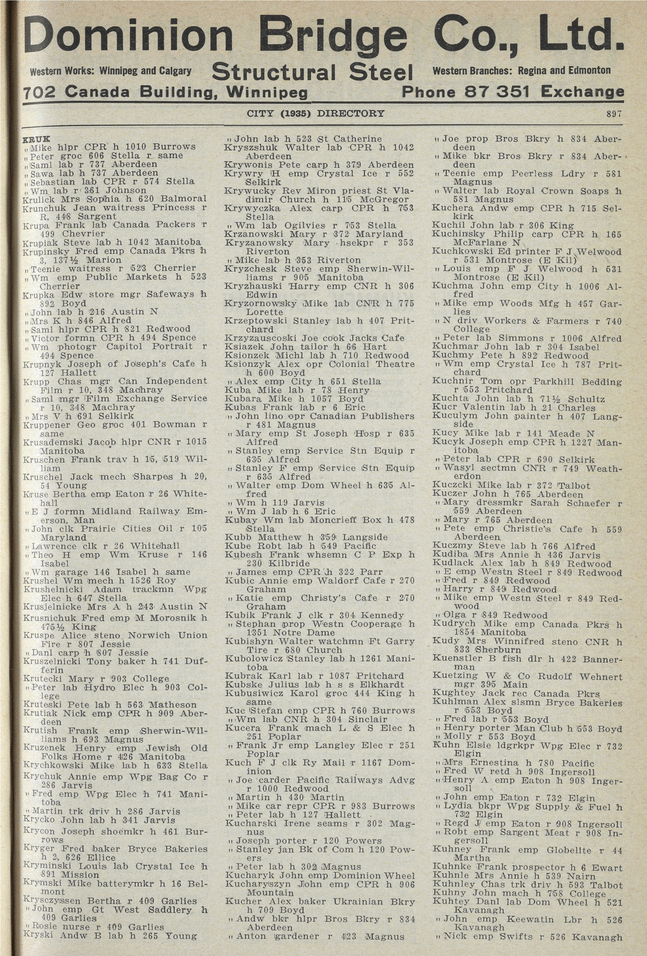 Dominion Bridge Co., Ltd.
Western Works: Winnipeg and Calgary Structural Steel Western Branches: Regina and Edmonton
702 Canada Building, Winnipeg Phone 87 351 Exchange
CITY (1935) DIRECTORY 897
KRUK
" Mike hlpr CPR h 1010 Burrows
" Peter groc 606 Stella r same
" Saml lab r 737 Aberdeen
" Sawa lab h 737 Aberdeen
" Sebastian lab CPR r 574 Stella
" Wm lab r 361 Johnson
Krulick Mrs Sophia h 620 Balmoral
Krunchuk Jean waitress Princess r
R, 446 Sargent
Krupa Frank lab Canada Packers r
499 Chevrier
Krupiak Steve lab h 1042 Manitoba
Krupinsky Fred emp Canada Pkrs h
3, 137½ Marion
" Teenie waitress r 523 Cherrier
" Wm emp Public Markets h 523
Cherrier
Krupka Edw store mgr Safeways h
892 Boyd
" John lab h 216 Austin N
" Mrs K h 846 Alfred
" Saml hlpr CPR h 821 Redwood
" Victor formn CPR h 494 Spence
" Wm photogr Capitol Portrait r
494 Spence
Krupnyk Joseph of Joseph's Cafe h
127 Hallett
Krupp Chas mgr Can Independent
Film r 10, 348 Machray
" Saml mgr Film Exchange Service
r 10, 348 Machray
" Mrs V h 691 Selkirk
Kruppener Geo groc 401 Bowman r
same
Krusademski Jacob hlpr CNR r 1015
Manitoba
Kruschen Frank trav h 15, 519 Wil-
liam
Kruschel Jack mech Sharpes h 20,
54 Young
Kruse Bertha emp Eaton r 26 White-
hall
" E J formn Midland Railway Em-
erson, Man
" John clk Prairie Cities Oil r 105
Maryland
" Lawrence clk r 26 Whitehall
" Theo H emp Wm Kruse r 146
Isabel
" Wm garage 146 Isabel h same
Krushel Wm mech h 1526 Roy
Krushelnicki Adam trackmn Wpg
Elec h 647 Stella
Krusjelnicke Mrs A h 243 Austin N
Krusnichuk Fred emp M Morosnik h
475½ King
Kruspe Alice steno Norwich Union
Fire r 807 Jessie
" Danl carp h 807 Jessie
Kruszelnicki Tony baker h 741 Duf-
ferin
Krutecki Mary r 903 College
" Peter lab Hydro Elec h 903 Col-
lege
Kruteski Pete lab h 563 Matheson
Krutiak Nick emp CPR h 909 Aber-
deen
Krutish Frank emp Sherwin-Wil-
liams h 693 Magnus
Kruzenek Henry emp Jewish Old
Folks Home r 426 Manitoba
Krychkowski Mike lab h 633 Stella
Krychuk Annie emp Wpg Bag Co r
286 Jarvis
" Fred emp Wpg Elec h 741 Mani-
toba
" Martin trk driv h 286 Jarvis
Krycko John lab h 341 Jarvis
Krycon Joseph shoemkr h 461 Bur-
rows
Kryger Fred baker Bryce Bakeries
h 2, 626 Ellice
Kryminski Louis lab Crystal Ice h
891 Mission
Krymski Mike batterymkr h 16 Bel-
mont
Krysczyssen Bertha r 409 Garlies
" John emp Gt West Saddlery h
409 Garlies
" Rosie nurse r 409 Garlies
Kryski Andw B lab h 265 Young
" John lab h 523 St Catherine
Kryszshuk Walter lab CPR h 1042
Aberdeen
Krywonis Pete carp h 379 Aberdeen
Krywry H emp Crystal Ice r 552
Selkirk
Krywucky Rev Miron priest St Vla-
dimir Church h 115 McGregor
Krywyczka Alex carp CPR h 753
Stella
" Wm lab Ogilvies r 753 Stella
Krzanowski Mary r 372 Maryland
Kryzanowsky Mary hsekpr r 353
Riverton
" Mike lab h 353 Riverton
Kryzchesk Steve emp Sherwin-Wil-
liams r 905 Manitoba
Kryzhauski Harry emp CNR h 306
Edwin
Kryzornowsky Mike lab CNR h 775
Lorette
Krzeptowski Stanley lab h 407 Prit-
chard
Krzyzauscoski Joe cook Jacks Cafe
Ksiazek John tailor h 66 Hart
Ksionzek Michl lab h 710 Redwood
Ksionzyk Alex opr Colonial Theatre
h 600 Boyd
" Alex emp City h 651 Stella
Kuba Mike lab r 78 Henry
Kubara Mike h 1057 Boyd
Kubas Frank lab r 6 Eric
" John lino opr Canadian Publishers
r 481 Magnus
" Mary emp St Joseph Hosp r 635
Alfred
" Stanley emp Service Stn Equip r
635 Alfred
" Stanley F emp Service Stn Equip
r 635 Alfred
" Walter emp Dom Wheel h 635 Al-
fred
" Wm h 119 Jarvis
" Wm J lab h 6 Eric
Kubay Wm lab Moncrieff Box h 478
Stella
Kubb Matthew h 359 Langside
Kube Robt lab h 549 Pacific
Kubesh Frank whsemn C P Exp h
230 Kilbride
" James emp CPR h 322 Parr
Kubic Annie emp Waldorf Cafe r 270
Graham
" Katie emp Christy's Cafe r 270
Graham
Kubik Frank J clk r 304 Kennedy
" Stephan prop Westn Cooperage h
1251 Notre Dame
Kubishyn Walter watchmn Ft Garry
Tire r 680 Church
Kubolowicz Stanley lab h 1261 Mani-
toba
Kubrak Karl lab r 1087 Pritchard
Kubske Julius lab h s s Elkhardt
Kubusiwicz Karol groc 444 King h
same
Kuc Stefan emp CPR h 760 Burrows
" Wm lab CNR h 304 Sinclair
Kucera Frank mach L & S Elec h
251 Poplar
" Frank Jr emp Langley Elec r 251
Poplar
Kuch F J clk Ry Mail r 1167 Dom-
inion
" Joe carder Pacific Railways Advg
r 1000 Redwood
" Martin h 430 Martin
" Mike car repr CPR r 983 Burrows
" Peter lab h 127 Hallett
Kucharski Irene seams r 302 Mag-
nus
" Joseph porter r 120 Powers
" Stanley jan Bk of Com h 120 Pow-
ers
" Peter lab h 302 Magnus
Kucharyk John emp Dominion Wheel
Kucharyszyn John emp CPR h 906
Mountain
Kucher Alex baker Ukrainian Bkry
h 709 Boyd
" Andw bkr hlpr Bros Bkry r 834
Aberdeen
" Anton gardener r 423 Magnus
" Joe prop Bros Bkry h 834 Aber-
deen
" Mike bkr Bros Bkry r 834 Aber-
deen
" Teenie emp Peerless Ldry r 581
Magnus
" Walter lab Royal Crown Soaps h
581 Magnus
Kuchera Andw emp CPR h 715 Sel-
kirk
Kuchil John lab r 306 King
Kuchinsky Philip carp CPR h 165
McFarlane N
Kuchkowski Ed printer F J Welwood
r 531 Montrose (E Kil)
" Louis emp F J Welwood h 531
Montrose (E Kil)
Kuchma John emp City h 1006 Al-
fred
" Mike emp Woods Mfg h 457 Gar-
lies
" N driv Workers & Farmers r 740
College
" Peter lab Simmons r 1006 Alfred
Kuchmar John lab r 304 Isabel
Kuchmy Pete h 892 Redwood
" Wm emp Crystal Ice h 787 Prit-
chard
Kuchnir Tom opr Parkhill Bedding
r 553 Pritchard
Kuchta John lab h 71½ Schultz
Kucr Valentin lab h 21 Charles
Kuculym John painter h 407 Lang-
side
Kucy Mike lab r 141 Meade N
Kucyk Joseph emp CPR h 1227 Man-
itoba
" Peter lab CPR r 690 Selkirk
" Wasyl sectmn CNR r 749 Weath-
erdon
Kuczcki Mike lab r 372 Talbot
Kuczer John h 765 Aberdeen
" Mary dressmkr Sarah Schaefer r
559 Aberdeen
" Mary r 765 Aberdeen
" Pete emp Christie's Cafe h 559
Aberdeen
Kuczmy Steve lab h 766 Alfred
Kudiba Mrs Annie h 436 Jarvis
Kudlack Alex lab h 849 Redwood
" E emp Westn Steel r 849 Redwood
" Fred r 849 Redwood
" Harry r 849 Redwood
" Mike emp Westn Steel r 849 Red-
wood
" Olga r 849 Redwood
Kudrych Mike emp Canada Pkrs h
1854 Manitoba
Kudy Mrs Winnifred steno CNR h
833 Sherburn
Kuenstler B fish dlr h 422 Banner-
man
Kuetzing W & Co Rudolf Wehnert
mgr 395 Main
Kughtey Jack rec Canada Pkrs
Kuhlman Alex slsmn Bryce Bakeries
r 553 Boyd
" Fred lab r 553 Boyd
" Henry porter Man Club h 553 Boyd
" Molly r 553 Boyd
Kuhn Elsie ldgrkpr Wpg Elec r 732
Elgin
" Mrs Ernestina h 780 Pacific
" Fred W retd h 908 Ingersoll
" Henry A emp Eaton h 908 Inger-
soll
" John emp Eaton r 732 Elgin
" Lydia bkpr Wpg Supply & Fuel h
732 Elgin
" Regd J emp Eaton r 908 Ingersoll
" Robt emp Sargent Meat r 908 In-
gersoll
Kuhney Frank emp Globelite r 44
Martha
Kuhnke Frank prospector h 6 Ewart
Kuhnle Mrs Annie h 539 Nairn
Kuhnley Chas trk driv h 593 Talbot
Kuhny John mach h 758 College
Kuhtey Danl lab Dom Wheel h 521
Kavanagh
" John emp Keewatin Lbr h 526
Kavanagh
" Nick emp Swifts r 526 Kavanagh